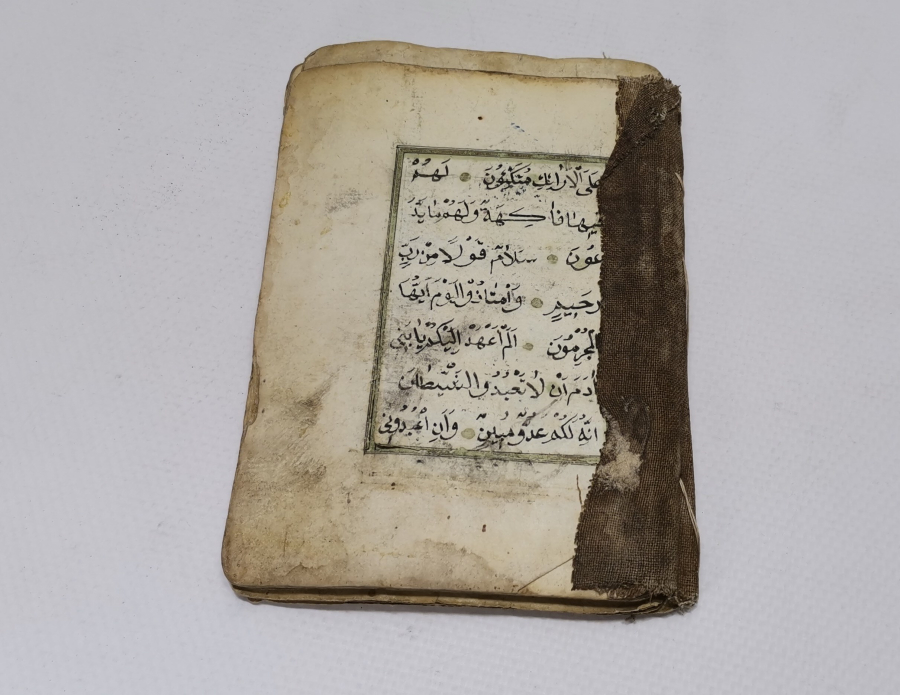 عَلَى الْاَرَائِكِ مُتَّكِئُونَ لَهُمْ
فِيهَا فَاكِهَةٌ وَلَهُمْ مَا يَدَّ
عُونَ سَلَامٌ قَوْلًا مِنْ رَبٍّ
رَحِيمٍ وَامْتَازُوا الْيَوْمَ اَيُّهَا
الْمُجْرِمُونَ اَلَمْ اَعْهَدْ اِلَيْكُمْ يَا بَنِي
اٰدَمَ اَنْ لَا تَعْبُدُوا الشَّيْطَانَ
اِنَّهُ لَكُمْ عَدُوٌّ مُبِينٌ وَاَنِ اعْبُدُونِي